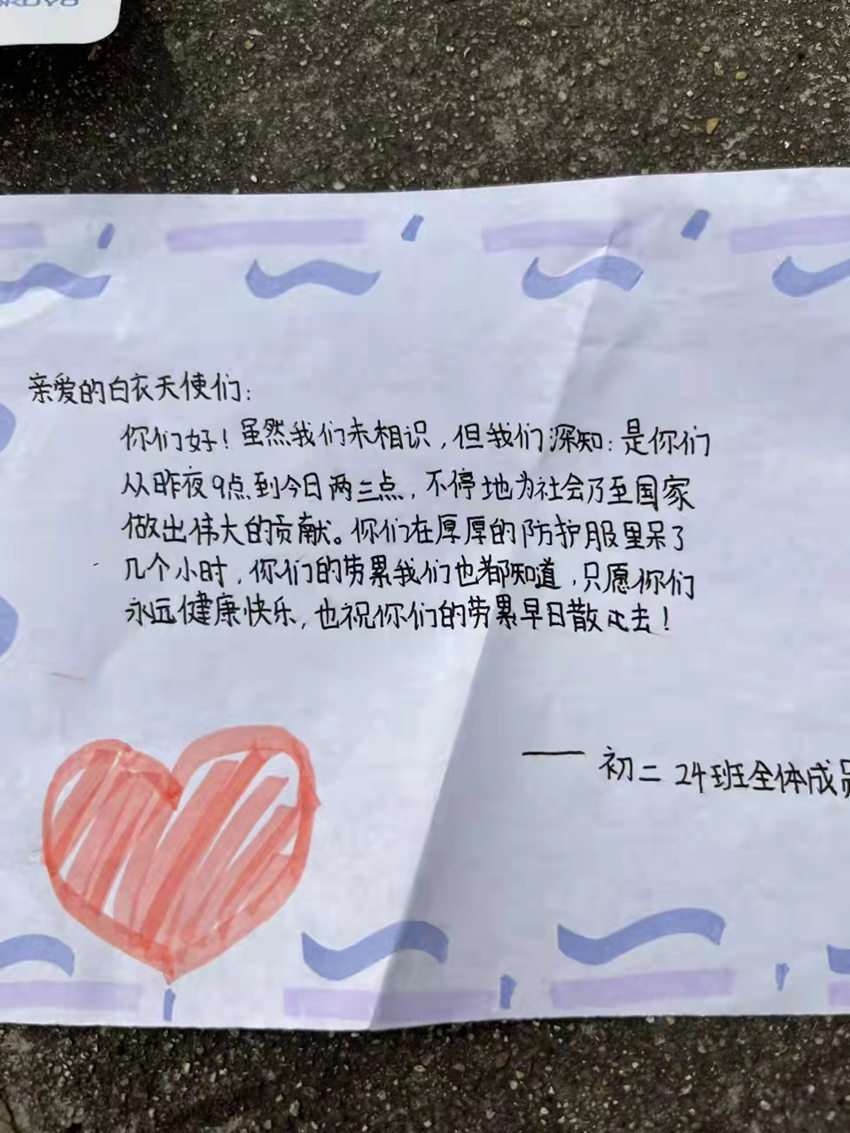 亲爱的白衣天使们:
你们好!虽然我们未相识,但我们深知:是你们
从昨夜9点到今日两三点,不停地为社会乃至国家
做出伟大的贡献。你们在厚厚的防护服里呆了
几个小时,你们的劳累我们也都知道,只愿你们
永远健康快乐,也祝你们的劳累早日散去!
——初二24班全体成员